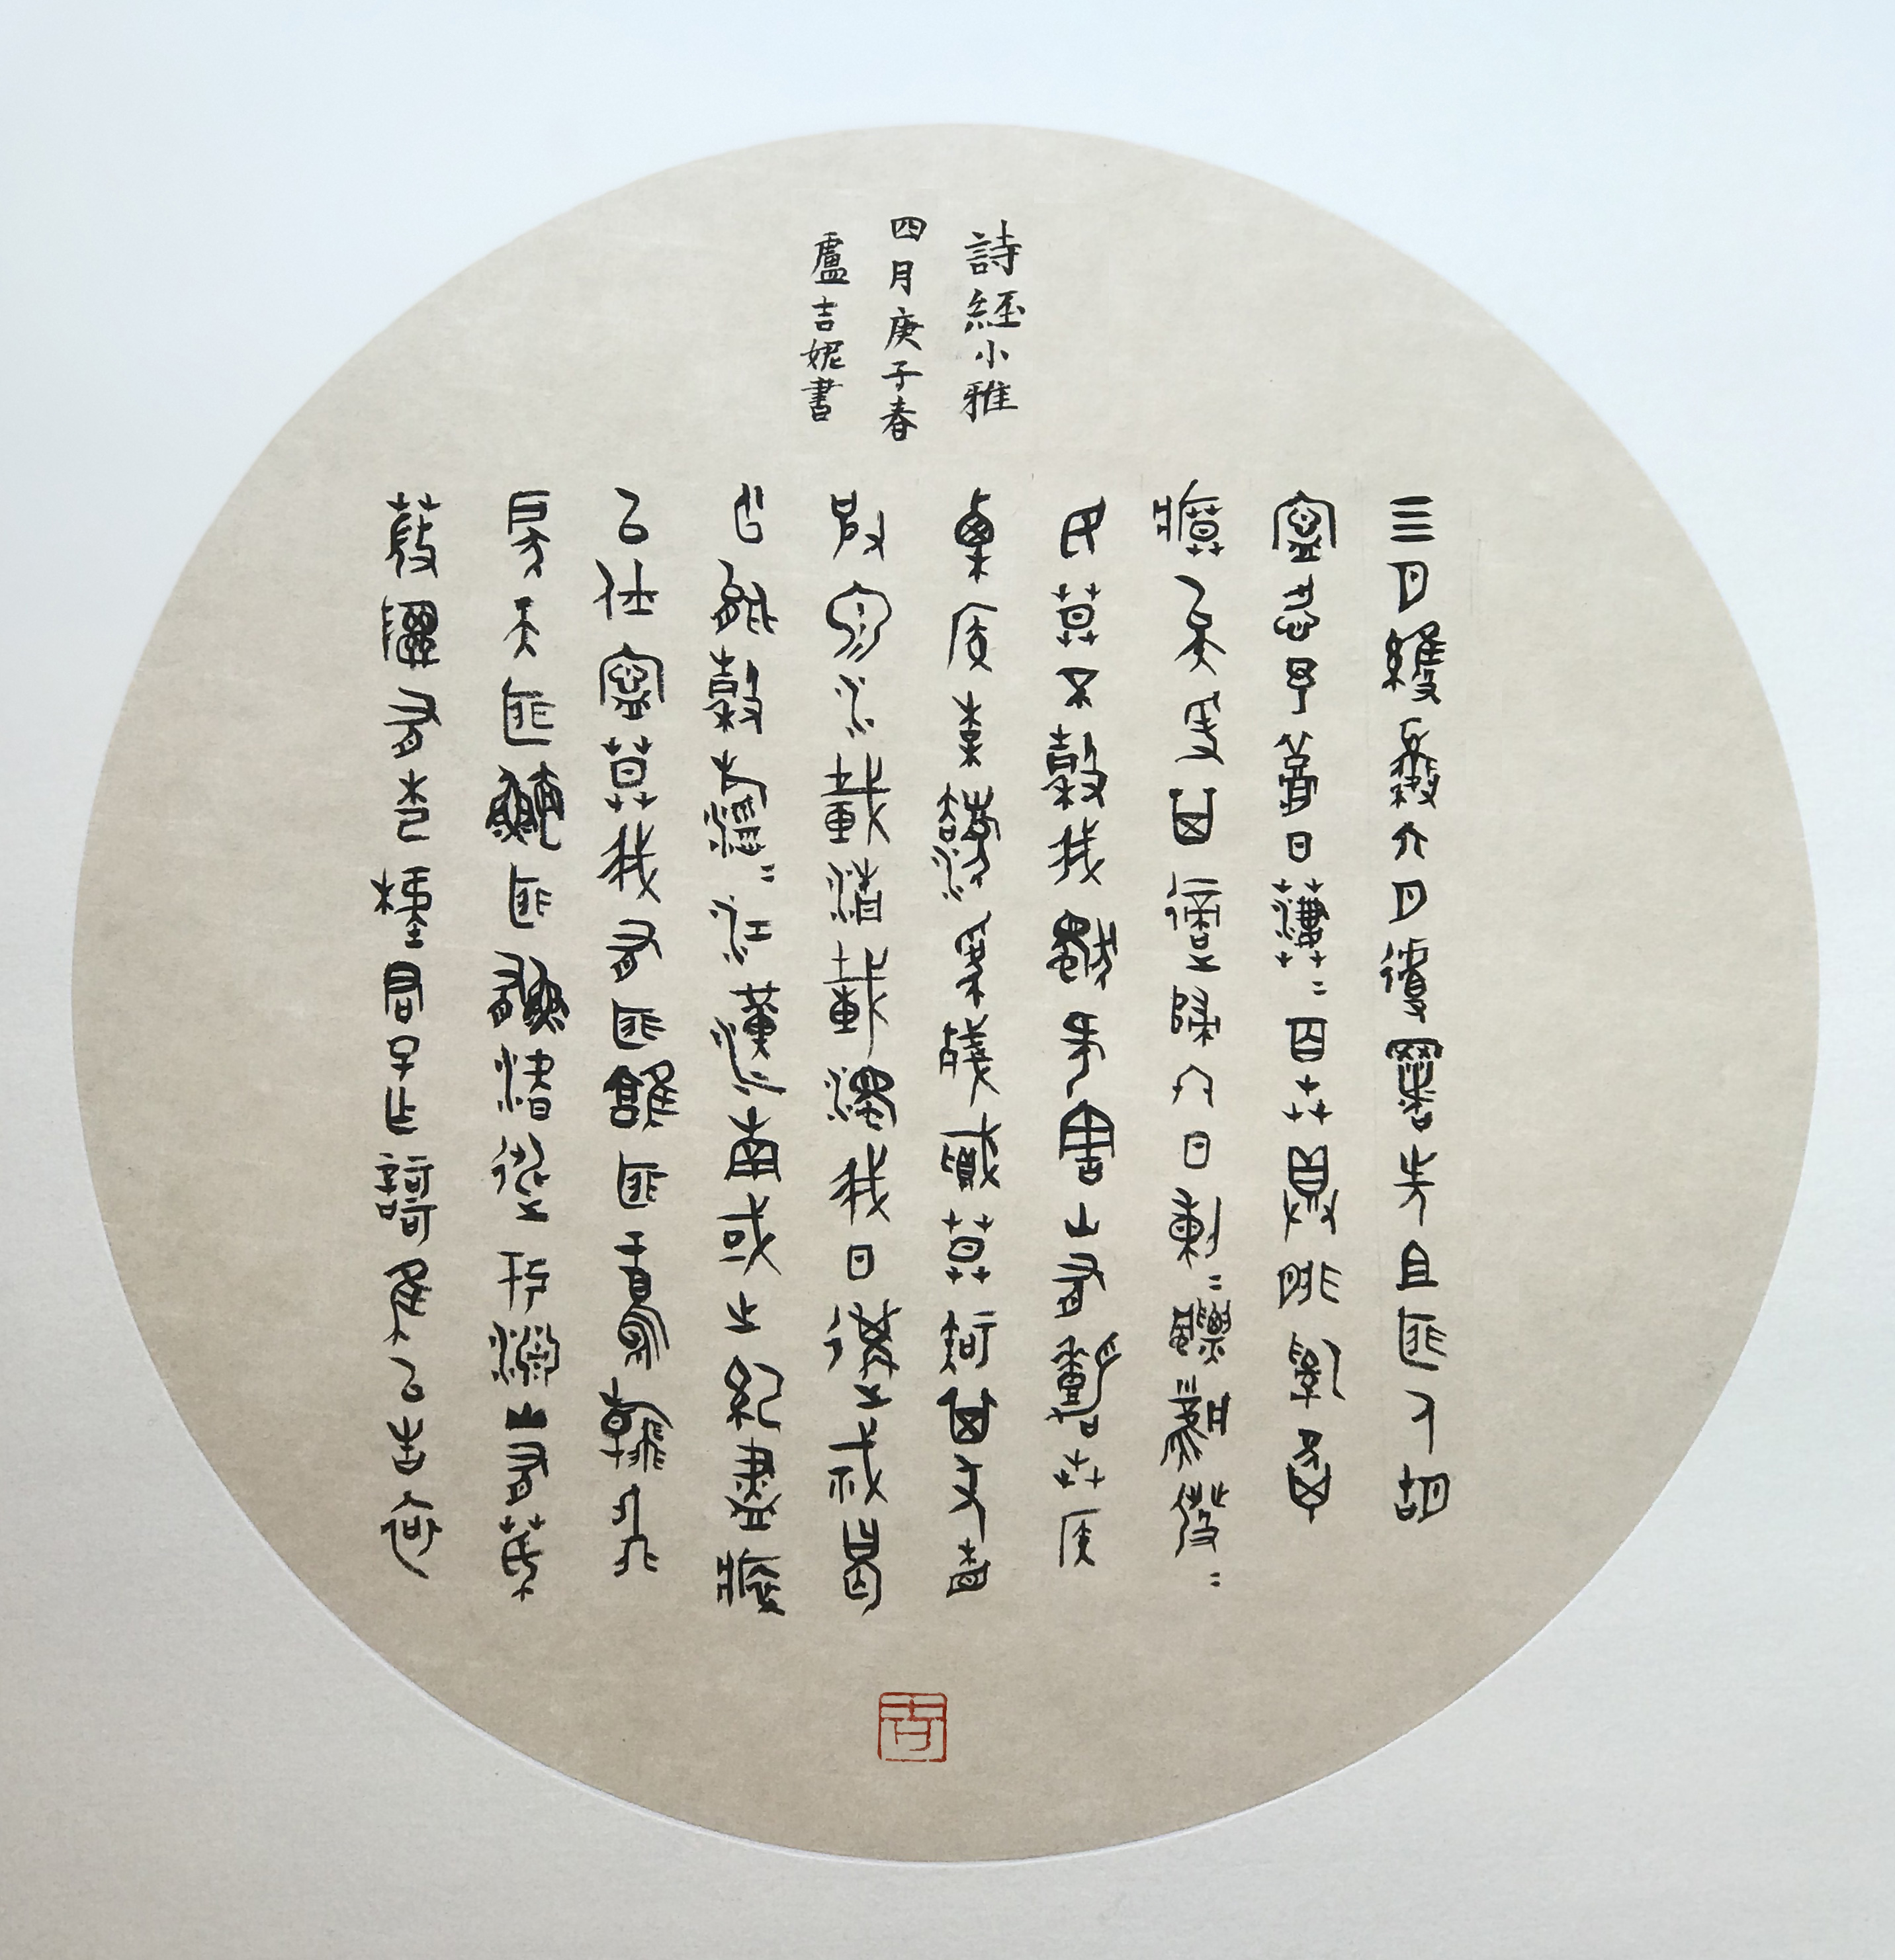 詩經小雅
四月庚子春
盧吉妮書
四月維夏六月徂暑先祖匪人胡
寧忍予秋日淒=百卉具腓亂離
瘼矣爰其適歸冬日烈=飄風發=
民莫不穀我獨何害山有嘉卉侯
栗侯梅廢為殘賊莫知其尤相
彼泉水載清載濁我日構禍曷
云能穀滔=江漢南國之紀盡瘁
以仕寧莫我有匪鶉匪鳶翰飛
戾天匪鱣匪鮪潛逃于淵山有蕨
薇隰有杞桋君子作歌維以告哀
吉